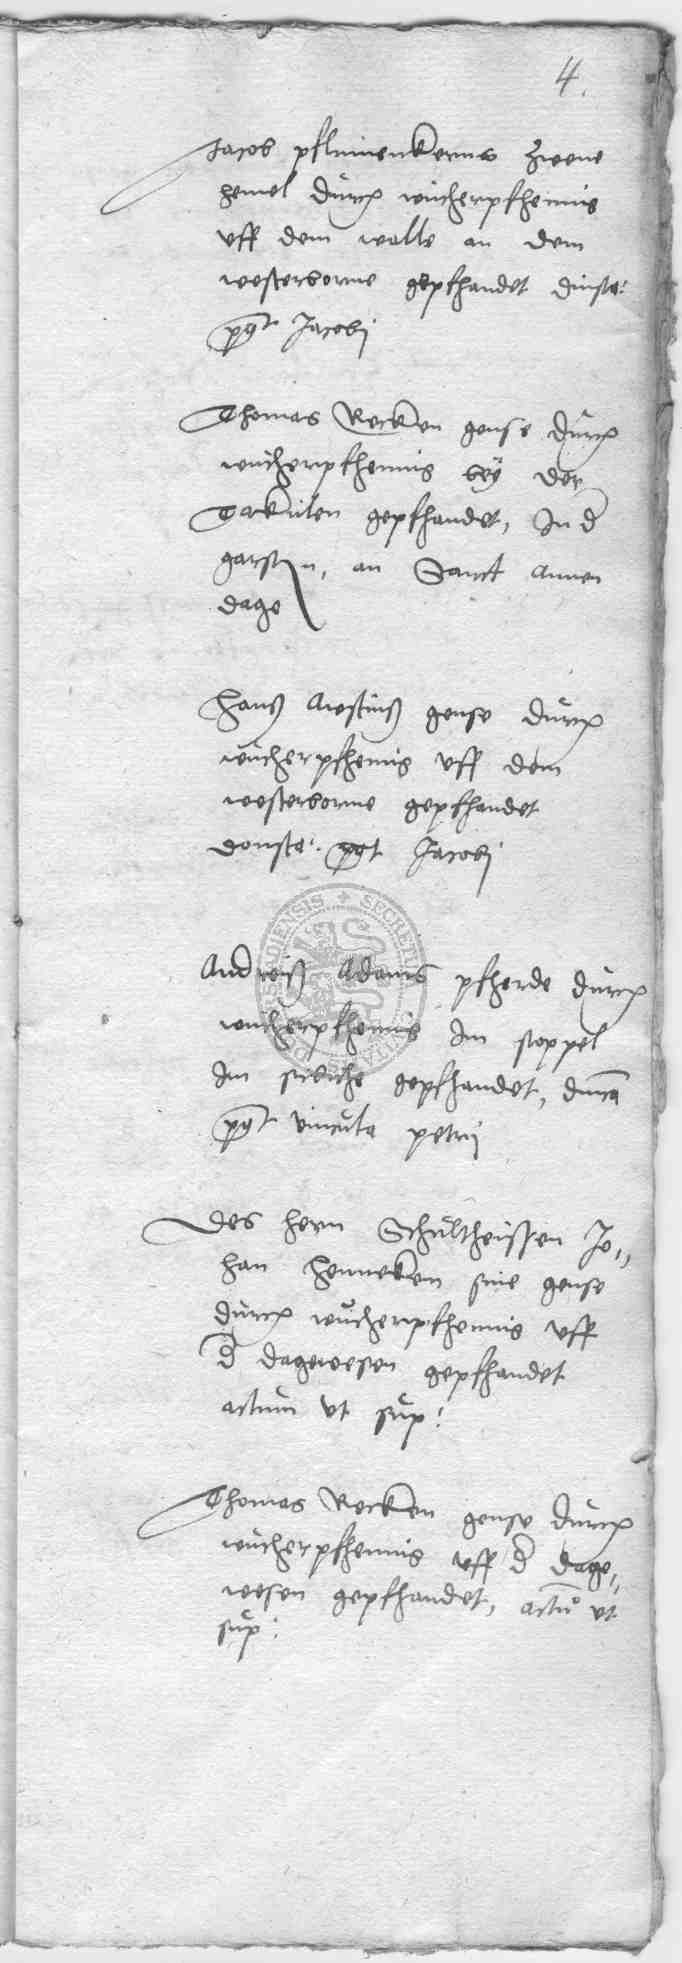 4.
Jacob pflumenkerns zwene
hemel durch wucherpfhennig
uff dem walle an dem
westerborne gepfhandet dinsta:
pgt Jacobj
Thomas Recken gense durch
wucherpfhennig bey der
Tarkulen gepfhandet, In d
garsten, an Sanct Annen
dage
Hanß Aueschiß gense durch
wucherpfhennig uff dem
westerborne gepfhandet
donsta: pgt Jacobj
Andreiß Adams pfherde durch
wucherpfhennig Im stoppel
Im gepfhandet,
pgt vincula petrij
Des hern Schultheissen Jo„
han Henneken sine gense
durch wucherpfhennig uff
d dagewesen gepfhandet
actum ut sup:
Thomas Recken gense durch
wucherpfhennig uff d dage„
wesen gepfhandet, actu ut
sup:
DIENSIS SECRETU